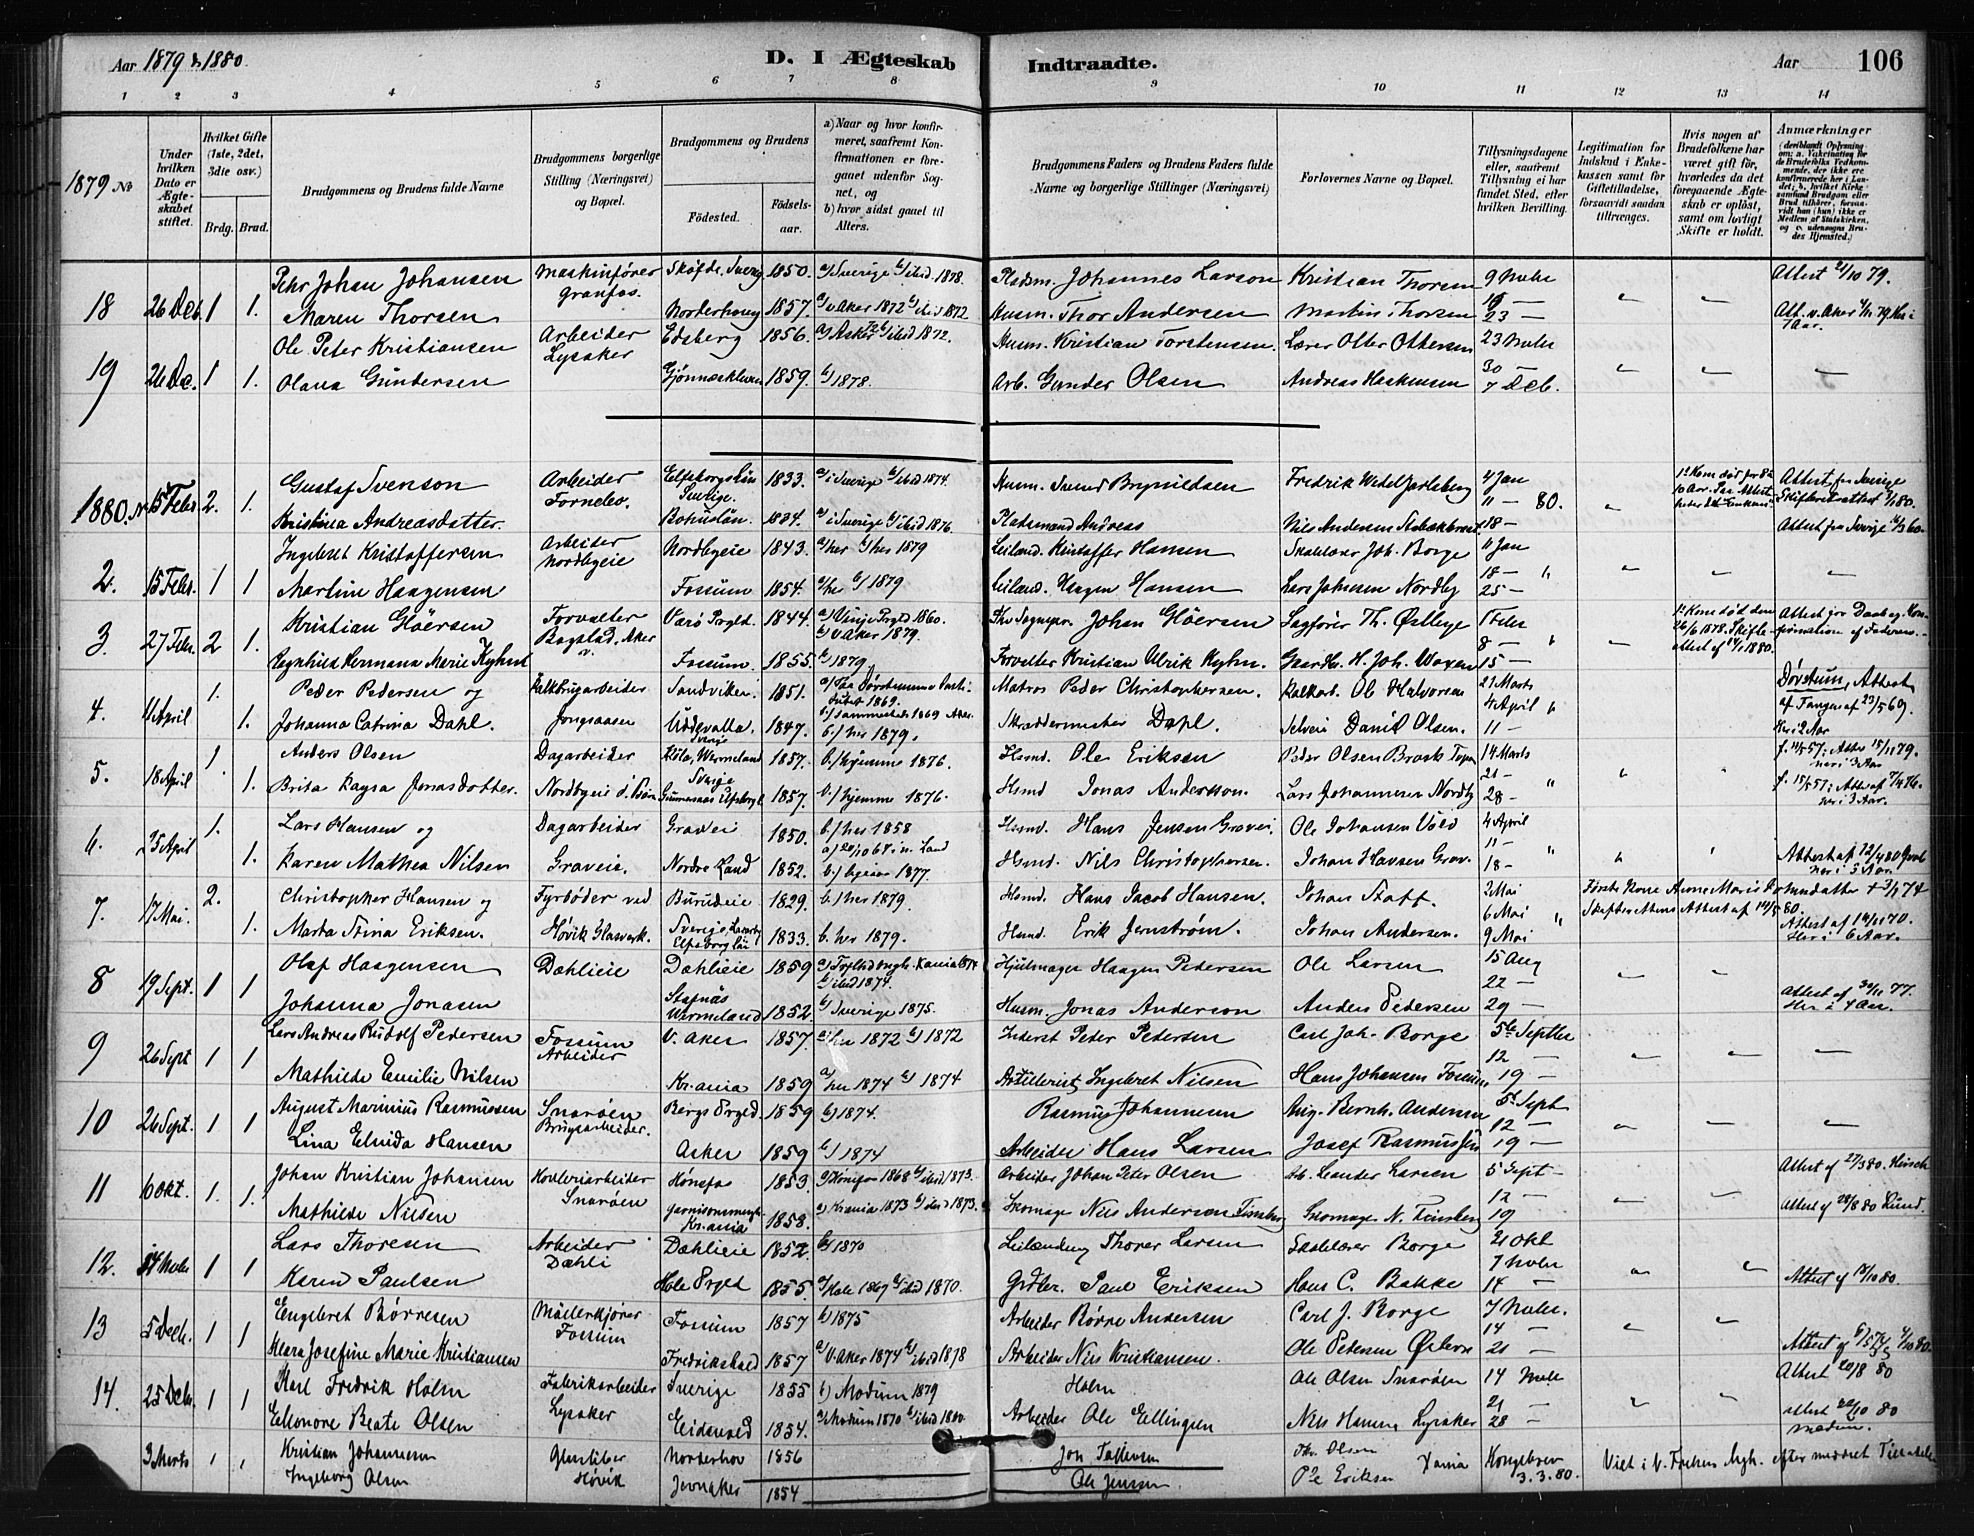 Aar 1879 & 1880. D. I Ægteskab Indtraadte. Aar 106
1 2 3 4 5 6 7 8 9 10 11 12 13 14
1879 No
Under hvilken Dato er Ægteskabet stiftet.
Hvilket Gifte (1ste, 2det, 3die osv.)
Brdg. Brud.
Brudgommens og Brudens fulde Navne
Brudgommens borgerlige Stilling (Næringsvei) og Bopæl.
Brudgommens og Brudens
Fødested. Fødselsaar.
a) Naar og hvor konfirmeret, saafremt Konfirmationen er foregaaet udenfor Sognet, og
b) hvor sidst gaaet til Alters.
Brudgommens Faders og Brudens Faders fulde Navne og borgerlige Stillinger (Næringsvei)
Forlovernes Navne og Bopæl.
Tillysningsdagene eller, saafremt Tillysning ei har fundet Sted, efter hvilken Bevilling.
Legitimation for Indskud i Enkekassen samt for Giftetilladelse, forsaavidt saadan tiltrænges.
Hvis nogen af Brudefolkene har været gift før, hvorledes da det foregaaende Ægteskab er opløst, samt om lovligt Skifte er holdt.
Anmærkninger (deriblandt Oplysning om: a. Vakcination for de Brudefolks Vedkommende, der ikke ere konfirmerede her i Landet; b. hvilket Kirkesamfund Brudgom eller Brud tilhører, forsaavidt han (hun) ikke er Medlem af Statskirken, og c. udensogns Brudes Hjemsted.)
18 26 Dcb. 1 1. Pehr Johan Johansen Maskinfører Granfos. Skøfde, Sverig 1850. a/ Sverige b/ ibid 1878. Pladsm. Johannes Larson Kristian Thorsen 9 Nvbr Attest 21/10 79.
Maren Thorsen Norderhoug 1857. a/ v Aker 1872 b/ ibid 1872 Husm. Thor Andersen Martin Thorsen 16 — 23 — Att. v. Aker 4/11 79 Her i 1 Aar.
19 26 Dc. 1 1. Ole Peter Kristiansen Arbeider Lysaker Edsberg 1856. a/ Asker b/ ibid 1872. Husm. Kristian Torstensen. Lærer Otter Ottersen 23 Nvbr
Olava Gundersen 1859. b/ 1878. Arb. Gunder Olsen Andreas Haskensen 30 — 7 Dcb.
1880. N 15 Febr 2. 1. Gustaf Svenson Arbeider Fornebo. Elfsborgslän Sverige. 1833. a/ i Sverige b/ ibid 1874. Husm. Svend Brynildsen Fredrik Wedel Jarlsberg 4 Jan Attest fra Sverige
Kristina Andreasdatter. Bohuslän. 1834. a/ i Sverige b/ ibid 1876. Pladsmand Andreas Nils Andersen 11 — 80. 18 — Attest fra Sverige
2. 15 Febr. 1 1 Ingebret Kristoffersen Arbeider Nordbyeie Nordbyeie 1843. a/ her b/ her 1879 Leiland. Kristoffer Hansen Skolelærer Joh. Borge 11 Jan
Martine Haagensen Fossum 1854. a/ her b/ 1879 Leiland. Haagen Hansen Lars Johnsen Nordby 18 — 25 —
3. 27 Febr. 2 1. Kristian Gløersen Forvalter Bogstad, v. Aker Varø Prgld. 1844. a/ Vinje Prgld 1860. b/ v Aker 1879. Johan Gløersen Sagfører Th. Østbye 1 Febr 1ste Kone død den 26/6 1878. Skifte Attest af 14/1 1880. Attest for Daab og Konfirmation af Faderen.
Ragnhild Hermana Marie Kyhn Fossum. 1855. b/ 1879 Forvalter Kristian Ulrik Kyhn. H. Joh. Woxen 8 — 15 —
4. 11 April 1. 1. Peder Pedersen og Kalkbrugarbeider Jongsaasen Sandviken. 1851. a/ Paa Døvstumme Instituttet 1869. b./ sammesteds 1869 Matros Peder Christophersen. Kalkarb. Ol Halvorsen 21 Marts Døvstum, Attest af Tangen af 23/5 69.
Johanna Catrina Dahl. Uddevalla. Sverig 1847. b./ her 1879. Skræddermester Dahl. Selveier Daniel Olsen. 4 April 11 — Her i 2 Aar
5. 18 April 1. 1. Anders Olsen Dagarbeider Kila, Wermeland Sverige 1857. b./ hjemme 1876. Hsmd. Ole Eriksen Peder Olsen Braak 14 Marts Attest 15/11 79. her i 3 Aar
Brita Kaysa Jonasdotter. Nordbyeie 1857. b./ hjemme 1876. Hsmd Jonas Andersson. Lars Johannesen Nordby 21 — 28 — her i 3 Aar.
6. 25 April 1. 1. Lars Hansen og Dagarbeider Graveie. Gravei 1850. b./ her 1858 Hsmd. Hans Jensen Gravei. Ole Johansen Vold 4 April
Karen Mathea Nilsen Nordre Land 1852. b./ 1877. Hsmd. Nils Christophersen. Johan Hansen Grav. 11 — 18 — Attest af 12/4 80 her i 5 Aar.
7. 17 Mai. 2. 1. Christopher Hansen og Fyrbøder ved Høvik Glasværk. Burudeie 1829. b./ her 1879. Hsmd. Hans Jacob Hansen. Johan Staff. 2 Mai Første Kone Anne Marie
Marta Stina Eriksen. Sverige, Elfsborg Län 1833. b. her 1879. Hsmd. Erik Jernstrøm. Johan Andersen. 6 Mai 9 Mai Attest af 14/11 70. Her i 6 Aar.
8 19 Sept. 1 1 Olaf Haagensen Dæhlieie Dæhlieie 1859 Hjulmager Haagen Pedersen Ole Larsen 15 Aug
Johanna Jonasen Stafnäs Wermeland 1852 b/ Sverige 1875. Husm. Jonas Anderson Anders Pedersen 22 — 29 — Attest af 30/11 77. Her i 4 Aar.
9 26 Sept 1 1 Lars Andreas Rudolf Pedersen Fossum Arbeider V. Aker 1857. a/ her 1872 b/ 1872 Inderst Peder Pedersen Carl Joh. Borge 5te Septbr
Mathilde Emilie Nilsen Kr.ania 1859 a/ her 1874 b/ 1874 Artillerist Ingebret Nilsen Hans Johansen Fossum 12 — 19 —
10 26 Sept. 1 1 August Marinius Rasmussen Snarøen Brugsarbeider. Bergs Prgld. 1859 b/ 1874. Rasmus Johannesen Aug. Bernh. Andersen 5te Sept
Lina Elvida Hansen Asker 1859 b/ 1874 Arbeider Hans Larsen Josef Rasmussen 12 — 19 —
11 6 Okt. 1. 1. Johan Kristian Johansen Høvleriarbeider Snarøen Hønefos 1853. a/ Hønefos 1868 b/ ibid 1873. Arbeider Johan Peter Olsen Arb. Leander Larsen 5 Sept — Attest af 27/3 80.
Mathilde Nilsen Garnisonsmenigh. Kr.ania 1858. a) Krania 1873 b/ ibid 1873. Skomager Nils Anderson Skomager N. 12 — 19 Attest af 28/8 80 Lund.
12. 14 Nvbr 1 1 Lars Thoresen Arbeider Dæhli Dæhlieie 1852. b/ 1870 Leilænding Thorer Larsen Skolelærer Borge 21 Okt
Karen Paulsen Hole Prgld 1855. a/ Hole 1869 b/ ibid 1870. Grdbr. Paul Eriksen Hans C. Bakke 7 Nvbr 14 — Attest af 12/10 80
13 5 Dcb. 1 1 Engebret Børresen Møllerkjører Fossum Fossum 1857 b) 1875 Arbeider Børre Andersen Carl J. Borge 7 Nvbr.
Klara Josefine Marie Kristiansen Fredrikshald 1857 a/ V. Aker 1874 b/ ibid 1878 Arbeider Nils Kristiansen. Ole Petersen Østern 14 — 21 —
14. 25 Dcbr 1 1 Karl Fredrik Holm Fabrikarbeider Lysaker Sverige 1855 b) Modum 1879 Holm Ole Olsen Snarøen 14 Nvbr Attest 20/8 80
Eleonore Beate Olsen Eidsvold 1854. a/ Modum 1870 b/ ibid 1880. Arbeider Ole Ellingsen Nils Hansen Lysaker 21 — 28 — attest 22/10 80 Modum.
3 Marts 1 1 Kristian Johannesen Glassliber Høvik Norderhov 1856 Olsen Kongebrev 3.3.80. Viet i
Ingeborg Olsen Jevnaker 1854 Ole Jenssen Ole Eriksen Xania